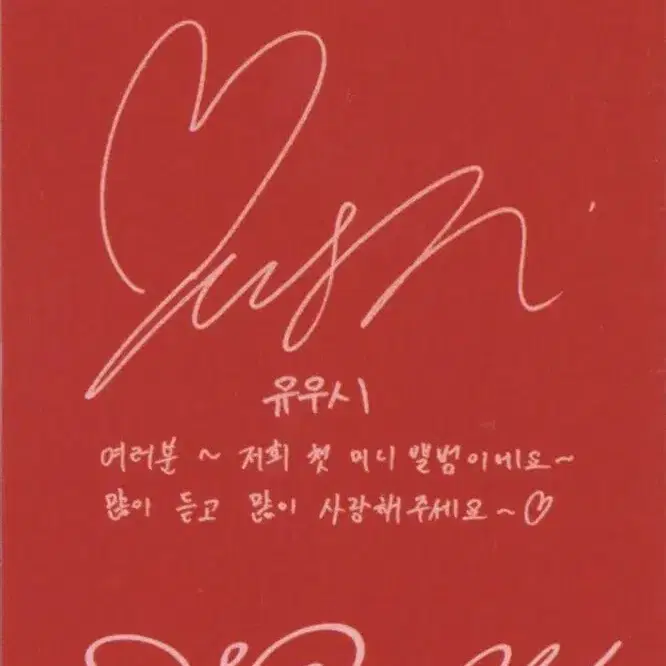 Yushi
유우시
여러분 ~ 저희 첫 미니 앨범이에요~
많이 듣고 많이 사랑해주세요~♡